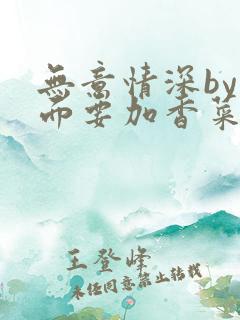 無意情深by
而要加香菜
王登峰
未经同意禁止转载